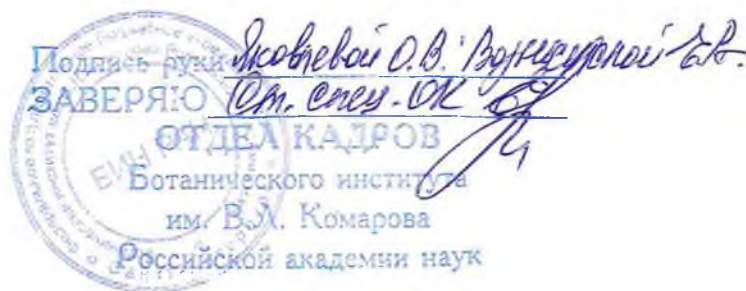 Подпись руки Яковлевой О.В. Вознесенской Е.В.
ЗАВЕРЯЮ Ст. спец. ОК
ОТДЕЛ КАДРОВ
Ботанического института
им. В.Л. Комарова
Российской академии наук